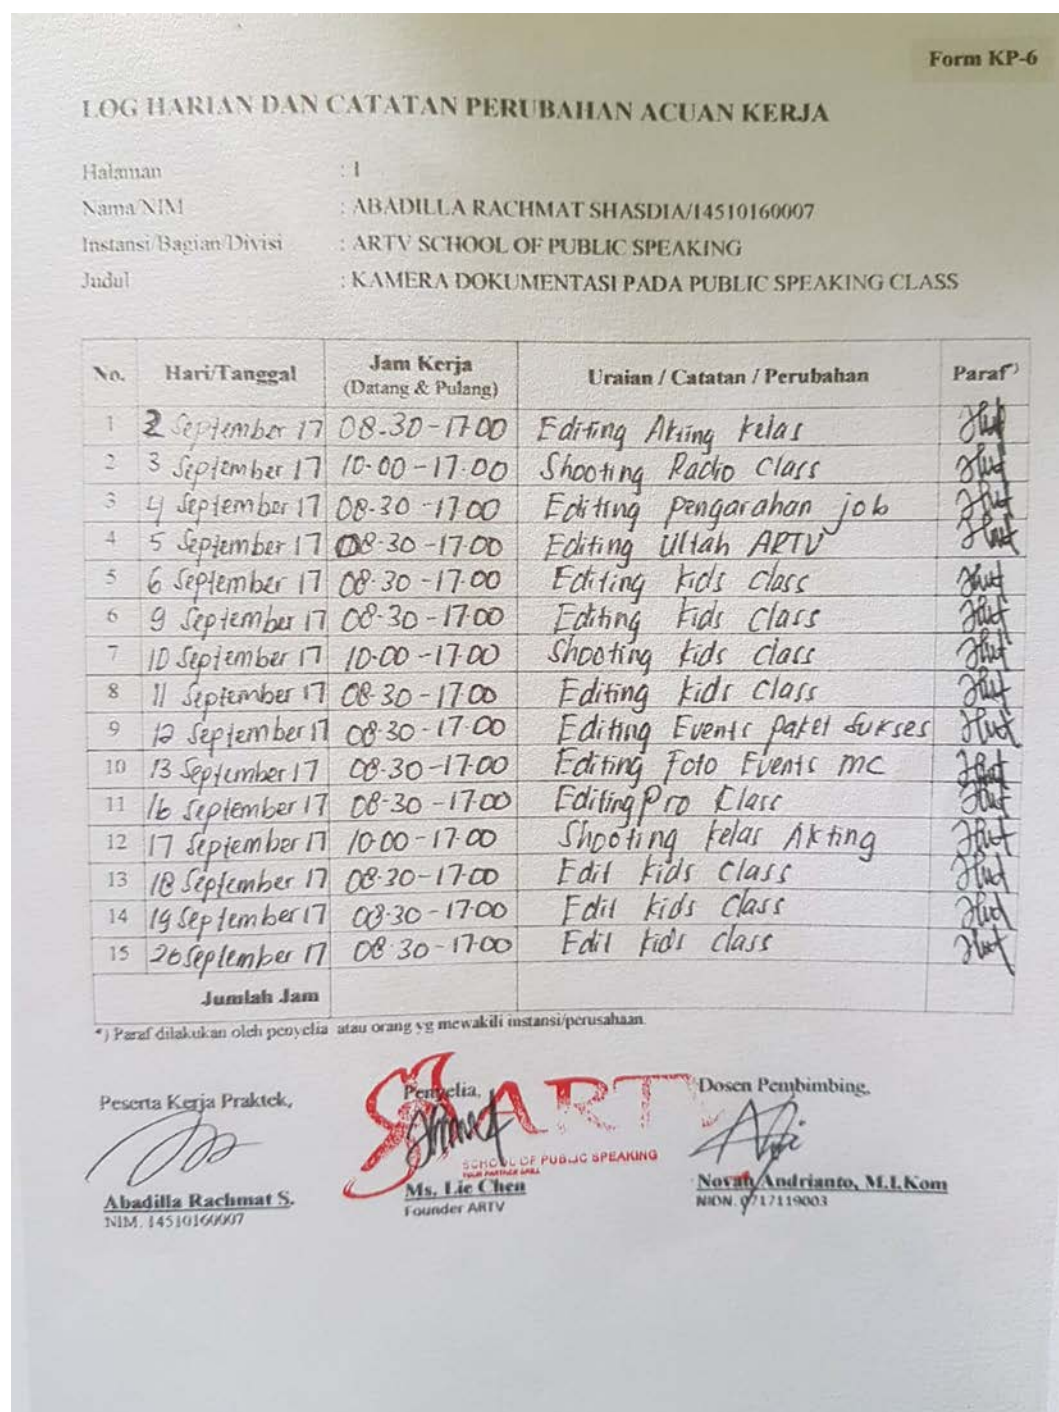 Form KP-6
LOG HARIAN DAN CATATAN PERUBAHAN ACUAN KERJA
Halaman : 1
Nama/NIM : ABADILLA RACHMAT SHASDIA/14510160007
Instansi/Bagian/Divisi : ARTV SCHOOL OF PUBLIC SPEAKING
Judul : KAMERA DOKUMENTASI PADA PUBLIC SPEAKING CLASS
No. Hari/Tanggal Jam Kerja (Datang & Pulang) Uraian / Catatan / Perubahan Paraf*)
1 2 September 17 08.30-17.00 Editing Akting kelas
2 3 September 17 10.00-17.00 Shooting Radio Class
3 4 September 17 08.30-17.00 Editing pengarahan job
4 5 September 17 08.30-17.00 Editing Ultah ARTV
5 6 September 17 08.30-17.00 Editing kids class
6 9 September 17 08.30-17.00 Editing kids class
7 10 September 17 10.00-17.00 Shooting kids class
8 11 September 17 08.30-17.00 Editing kids class
9 12 September 17 08.30-17.00 Editing Events paket sukses
10 13 September 17 08.30-17.00 Editing Foto Events MC
11 16 September 17 08.30-17.00 Editing Pro Class
12 17 September 17 10.00-17.00 Shooting kelas Akting
13 18 September 17 08.30-17.00 Edit kids class
14 19 September 17 08.30-17.00 Edit kids class
15 20 September 17 08.30-17.00 Edit kids class
Jumlah Jam
*) Paraf dilakukan oleh penyelia atau orang yg mewakili instansi/perusahaan.
Peserta Kerja Praktek, Penyelia, Dosen Pembimbing,
ARTV
SCHOOL OF PUBLIC SPEAKING
Abadilla Rachmat S. Ms. Lie Chen Novan Andrianto, M.I.Kom
NIM. 14510160007 Founder ARTV NIDN. 0717119003